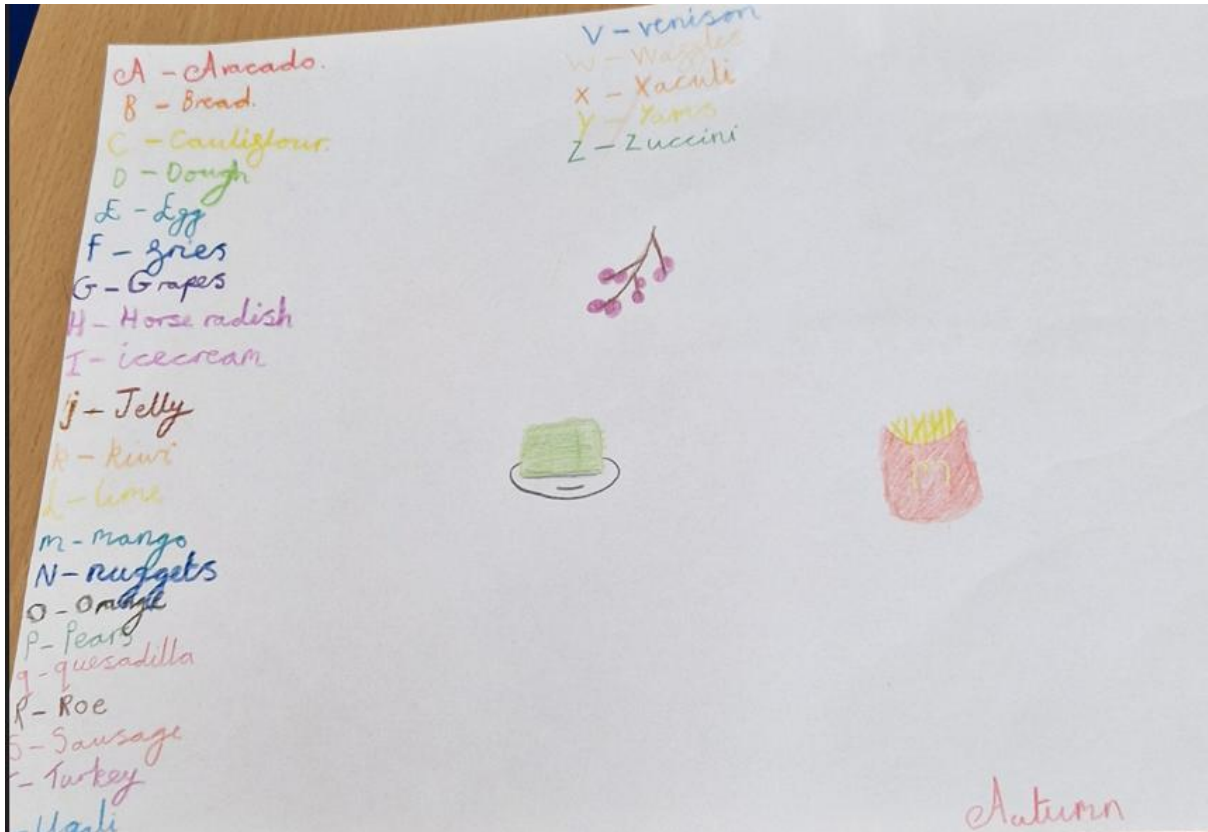 A - Avacado.
B - Bread.
C - Cauliflour.
D - Dough
E - Egg
F - fries
G - Grapes
H - Horse radish
I - icecream
j - Jelly
k - kiwi
L - lime
m - mango
N - nuggets
O - Orange
P - Pears
q - quesadilla
R - Roe
S - Sausage
- Turkey
- Ugali
V - venison
W - Waffles
X - Xacuti
Y - Yams
Z - Zuccini
M
Autumn